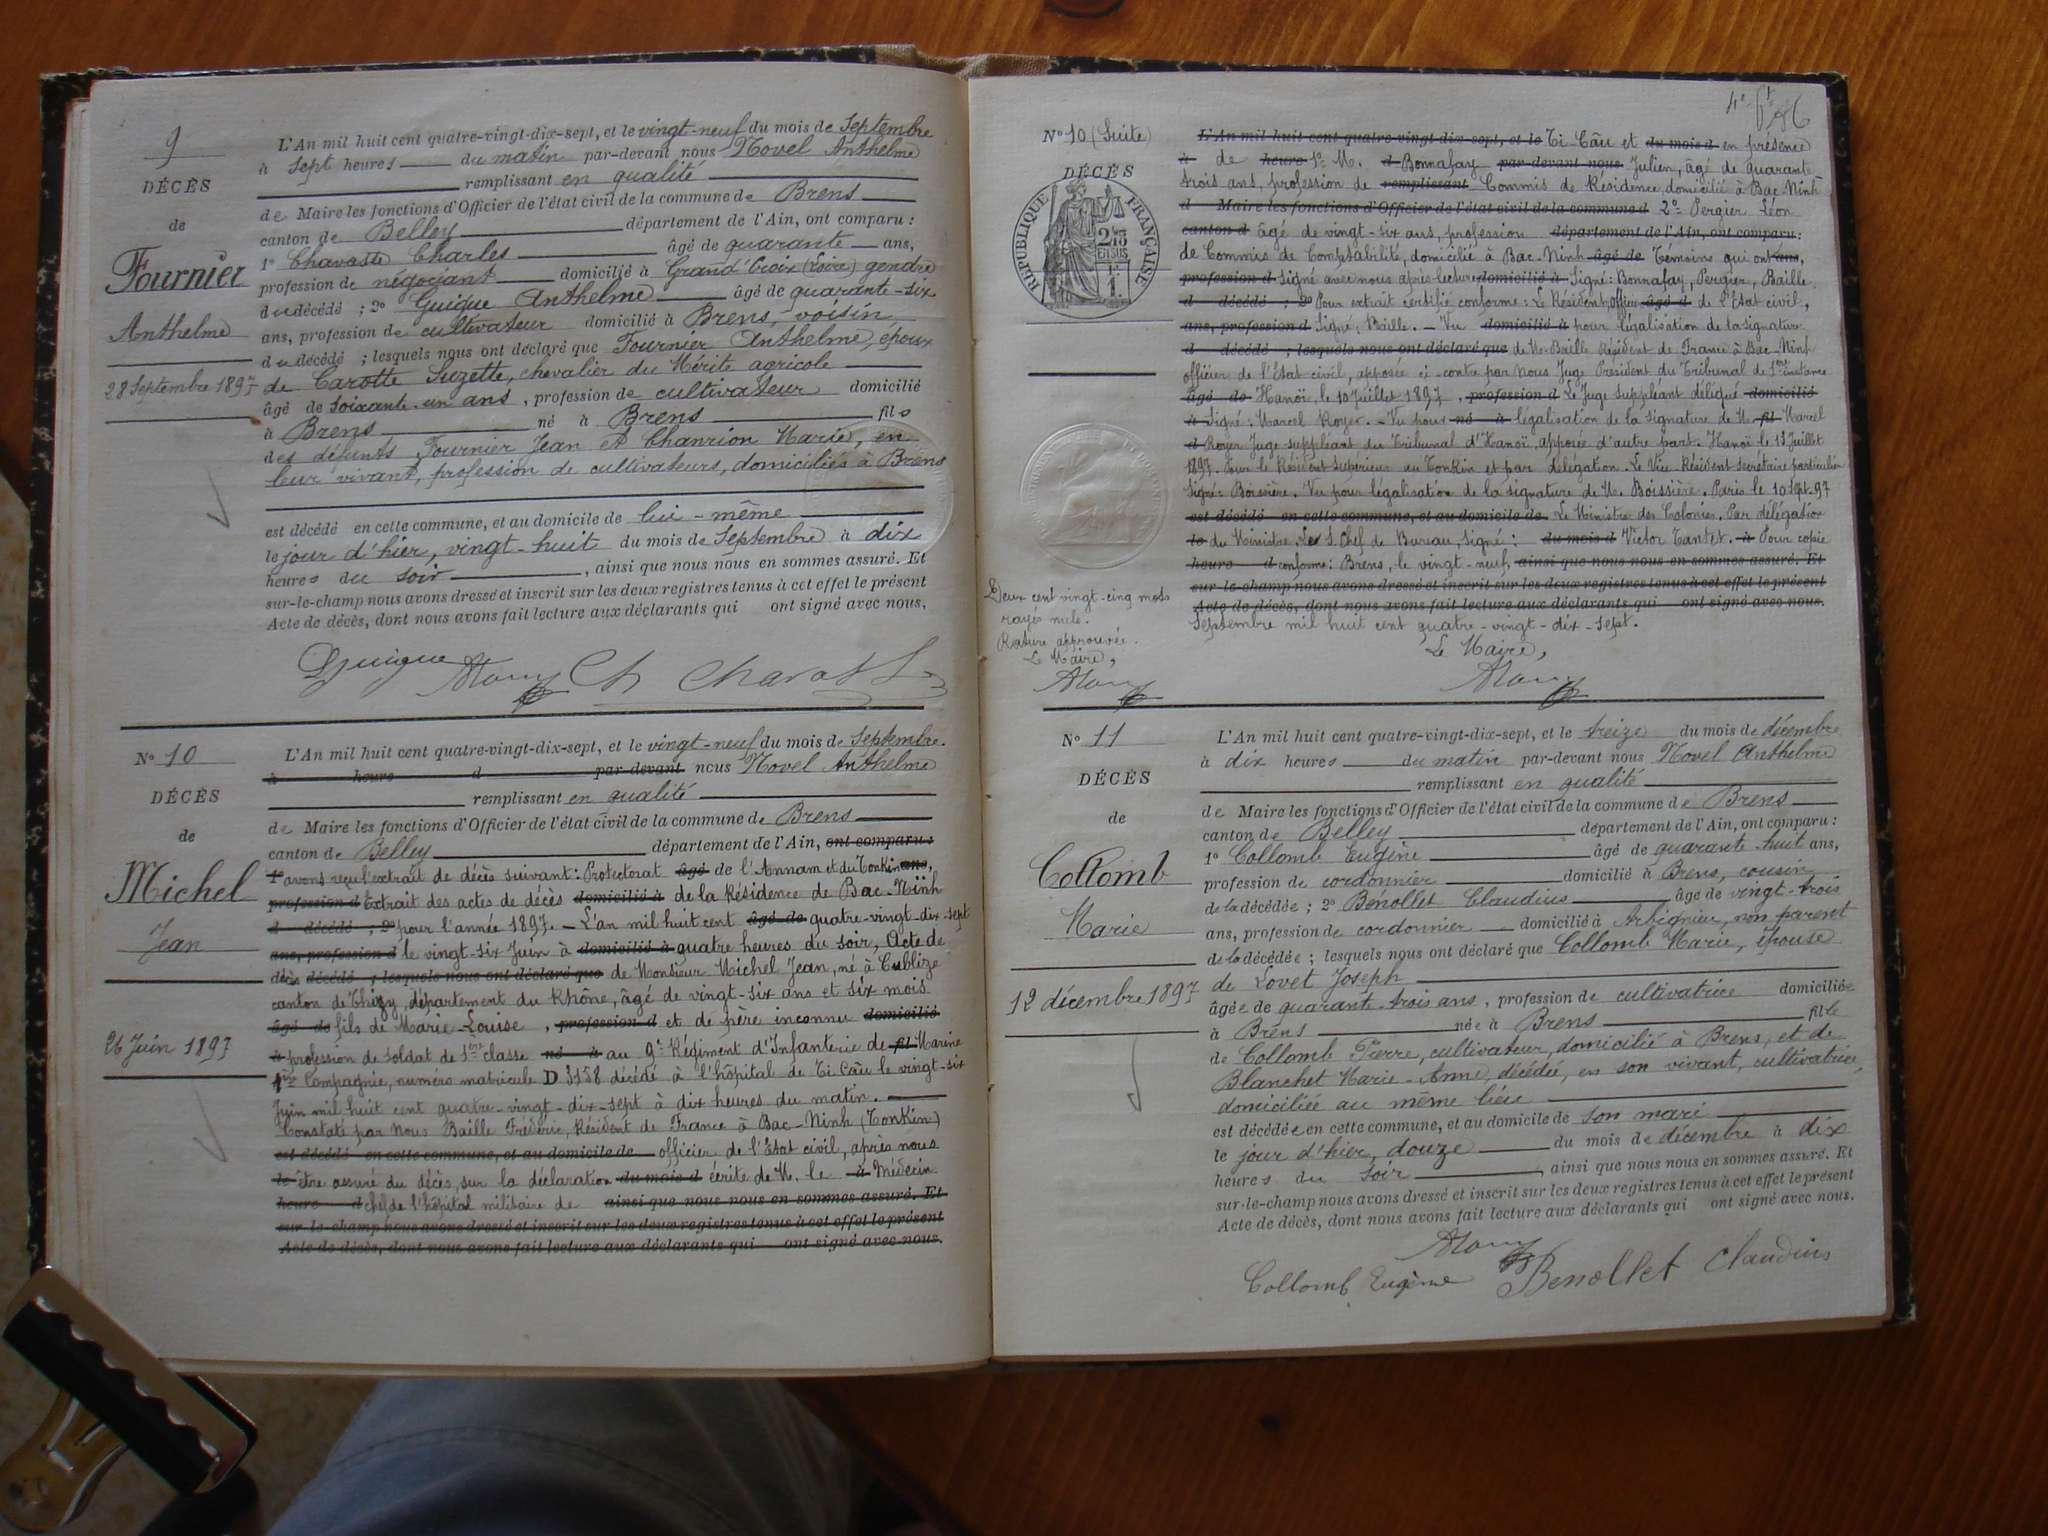 9
DÉCÈS
de
Fournier
Anthelme
28 Septembre 1897
L'An mil huit cent quatre-vingt-dix-sept, et le vingt-neuf du mois de Septembre
à sept heures du matin par-devant nous Novel Anthelme
remplissant en qualité
de Maire les fonctions d'Officier de l'état civil de la commune de Brens
canton de Belley département de l'Ain, ont comparu :
1º Chavaste Charles âgé de quarante ans,
profession de négociant domicilié à Grand'Croix (Loire) gendre
du décédé ; 2º Guigue Anthelme âgé de quarante-six
ans, profession de cultivateur domicilié à Brens, voisin
du décédé ; lesquels nous ont déclaré que Fournier Anthelme, époux
de Carotte Suzette, chevalier du Mérite agricole
âgé de soixante-un ans, profession de cultivateur domicilié
à Brens né à Brens fils
des défunts Fournier Jean et Chanrion Marie, en
leur vivant, profession de cultivateurs, domiciliés à Brens
est décédé en cette commune, et au domicile de lui-même
le jour d'hier, vingt-huit du mois de Septembre à dix
heures du soir, ainsi que nous nous en sommes assuré. Et
sur-le-champ nous avons dressé et inscrit sur les deux registres tenus à cet effet le présent
Acte de décès, dont nous avons fait lecture aux déclarants qui ont signé avec nous.
Guigue Ch
Nº 10
DÉCÈS
de
Michel
Jean
26 Juin 1897
L'An mil huit cent quatre-vingt-dix-sept, et le vingt-neuf du mois de Septembre.
à heure d par-devant nous Novel Anthelme
remplissant en qualité
de Maire les fonctions d'Officier de l'état civil de la commune de Brens
canton de Belley département de l'Ain, ont comparu :
1º avons reçu l'extrait de décès suivant : Protectorat âgé de l'Annam et du Tonkin ans,
profession d Extrait des actes de décès domicilié à de la Résidence de Bac-Ninh
d décédé ; 2º pour l'année 1897. - L'an mil huit cent âgé de quatre-vingt-dix-sept
ans, profession d le vingt-six Juin à domicilié à quatre heures du soir, Acte de
décès décédé ; lesquels nous ont déclaré que de Monsieur Michel Jean, né à Cublize
canton de Thizy, département du Rhône, âgé de vingt-six ans et six mois
âgé de fils de Marie-Louise, profession d et de père inconnu domicilié
à profession de soldat de 1ère classe né à au 9e Régiment d'Infanterie de fil Marine
Compagnie, numéro matricule D 3158 décédé à l'hôpital de Ti Câu le vingt-six
Juin mil huit cent quatre-vingt-dix-sept à dix heures du matin.
Constaté par Nous Baille Frédéric, Résident de France à Bac-Ninh (Tonkin)
est décédé en cette commune, et au domicile de officier de l'Etat civil, après nous
le être assuré du décès, sur la déclaration du mois d écrite de M. le à Médecin
heure d chef de l'hôpital militaire de ainsi que nous nous en sommes assuré. Et
sur-le-champ nous avons dressé et inscrit sur les deux registres tenus à cet effet le présent
Acte de décès, dont nous avons fait lecture aux déclarants qui ont signé avec nous.
4e
Nº 10 (Suite)
DÉCÈS
RÉPUBLIQUE FRANÇAISE
Deux cent vingt-cinq mots
rayés nuls.
Rature approuvée.
Le Maire,
L'An mil huit cent quatre-vingt-dix-sept, et le Ti-Câu et du mois d en présence
à de heure 1º M. d Bonnafay par-devant nous Julien, âgé de quarante
trois ans, profession de remplissant Commis de Résidence, domicilié à Bac-Ninh
d Maire les fonctions d'Officier de l'état civil de la commune d 2º Pergier Léon
canton d âgé de vingt-six ans, profession département de l'Ain, ont comparu :
de Commis de Comptabilité, domicilié à Bac-Ninh âgé de Témoins qui ont ans,
profession d signé avec nous après lecture domicilié à Signé : Bonnafay, Pergier, Baille.
d décédé ; 2º Pour extrait certifié conforme : Le Résident, officier âgé d de l'Etat civil,
ans, profession d Signé, Baille. - Vu domicilié à pour légalisation de la signature
d décédé ; lesquels nous ont déclaré que de M. Baille Résident de France à Bac-Ninh
officier de l'Etat civil, apposée ci-contre par Nous Juge Président du Tribunal de 1ère instance
âgé de Hanoï, le 10 Juillet 1897, profession d Le Juge suppléant délégué domicilié
à Signé : Marcel Royer. - Vu pour né à légalisation de la signature de M. fil Marcel
d Royer Juge suppléant du Tribunal d'Hanoï, apposée d'autre part. Hanoï le 13 Juillet
1897. Pour le Résident supérieur au Tonkin et par délégation. Le Vice-Résident secrétaire particulier
Signé : Boissière. Vu pour légalisation de la signature de M. Boissière. Paris le 10 Sept. 97
est décédé en cette commune, et au domicile de Le Ministre des Colonies. Par délégation
le du Ministre, Le S. Chef de Bureau, Signé : du mois d Victor Tantet. à Pour copie
heure d conforme : Brens, le vingt-neuf ainsi que nous nous en sommes assuré. Et
sur-le-champ nous avons dressé et inscrit sur les deux registres tenus à cet effet le présent
Acte de décès, dont nous avons fait lecture aux déclarants qui ont signé avec nous.
Septembre mil huit cent quatre-vingt-dix-sept.
Le Maire,
Nº 11
DÉCÈS
de
Collomb
Marie
12 décembre 1897
L'An mil huit cent quatre-vingt-dix-sept, et le treize du mois de décembre
à dix heures du matin par-devant nous Novel Anthelme
remplissant en qualité
de Maire les fonctions d'Officier de l'état civil de la commune de Brens
canton de Belley département de l'Ain, ont comparu :
1º Collomb Eugène âgé de quarante-huit ans,
profession de cordonnier domicilié à Brens, cousin
de la décédée ; 2º Benollet Claudius âge de vingt-trois
ans, profession de cordonnier domicilié à Arbignieu, non parent
de la décédée ; lesquels nous ont déclaré que Collomb Marie, épouse
de Lovet Joseph
âgée de quarante-trois ans, profession de cultivatrice domiciliée
à Brens née à Brens fille
de Collomb Pierre, cultivateur, domicilié à Brens, et de
Blanchet Marie-Anne, décédée, en son vivant, cultivatrice,
domiciliée au même lieu
est décédée en cette commune, et au domicile de son mari
le jour d'hier, douze du mois de décembre à dix
heures du soir, ainsi que nous nous en sommes assuré. Et
sur-le-champ nous avons dressé et inscrit sur les deux registres tenus à cet effet le présent
Acte de décès, dont nous avons fait lecture aux déclarants qui ont signé avec nous.
Collomb Eugène Benollet Claudius